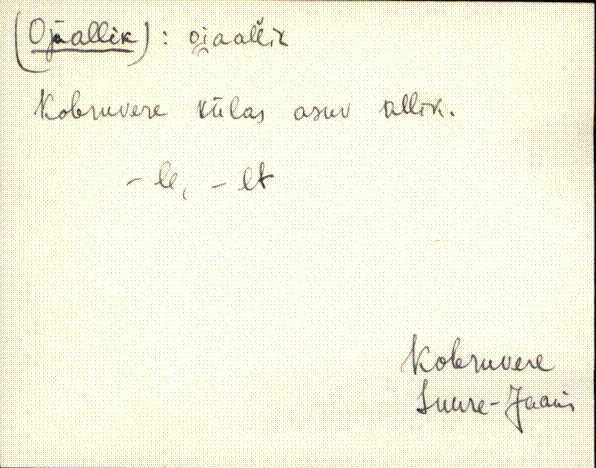 (Ojaallik) : oi̯aalĺik
Kobruvere külas asuv allik.
- le, - lt
Kobruvere
Suure-Jaani